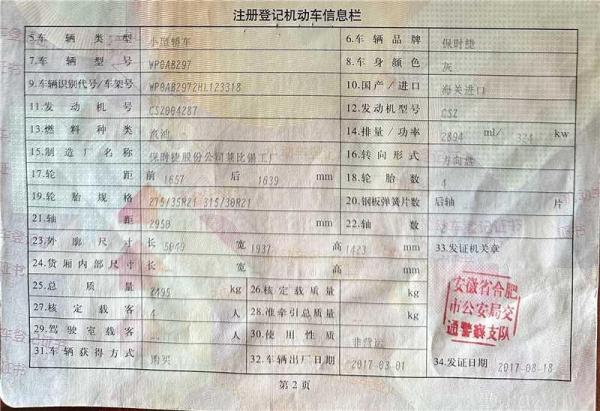 注册登记机动车信息栏
5.车辆类型 小型轿车 6.车辆品牌 保时捷
7.车辆型号 WP0AB297 8.车身颜色 灰
9.车辆识别代号/车架号 WP0AB2972HL123318 10.国产/进口 海关进口
11.发动机号 CSZ004287 12.发动机型号 CSZ
13.燃料种类 汽油 14.排量/功率 2894 ml/ 324 kw
15.制造厂名称 保时捷股份公司莱比锡工厂 16.转向形式 方向盘
17.轮距 前 1657 后 1639 mm 18.轮胎数 4
19.轮胎规格 275/35R21 315/30R21 20.钢板弹簧片数 后轴 片
21.轴距 2950 mm 22.轴数
23.外廓尺寸 长 5049 宽 1937 高 1423 mm 33.发证机关章
24.货厢内部尺寸 长 宽 高 mm
25.总质量 2495 kg 26.核定载质量 kg
27.核定载客 4 人 28.准牵引总质量 kg
29.驾驶室载客 人 30.使用性质 非营运
31.车辆获得方式 购买 32.车辆出厂日期 2017-03-01 34.发证日期 2017-08-18
安徽省合肥
市公安局交
通警察支队
第2页